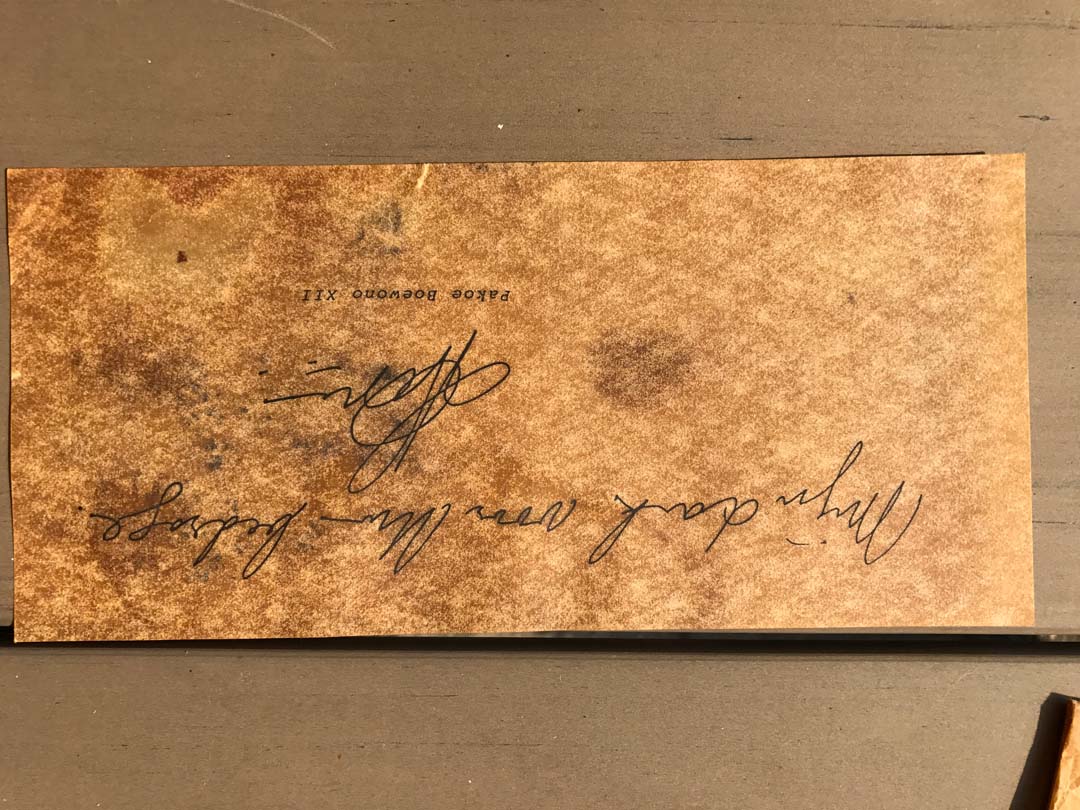 Mijn dank voor Uw bedrage.
Pakoe Boewono XII